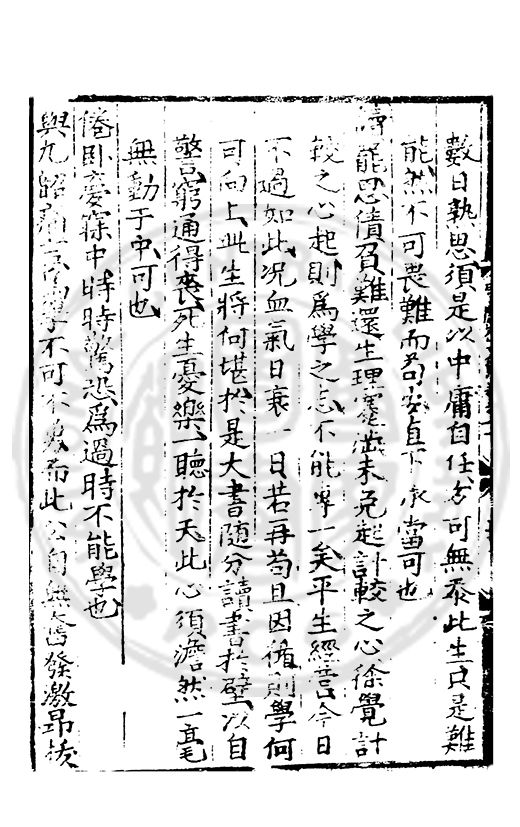 數日執思須是以中庸自任方可無忝此生只是難
能然不可畏難而苟安直下承當可也
讀罷思債負難還生理蹇澁未免起計較之心徐覺計
較之心起則爲學之志不能專一矣平生經營今日
不過如此况血氣日衰一日若再苟且因循則學何
可向上此生將何堪於是大書隨分讀書於壁以自
警窮通得喪死生憂樂一聽於天此心須澹然一毫
無動于中可也
倦卧憂寐中時時驚恐爲過時不能學也
與九韶 爲學不可不勇而此公自無奮發激昂拔